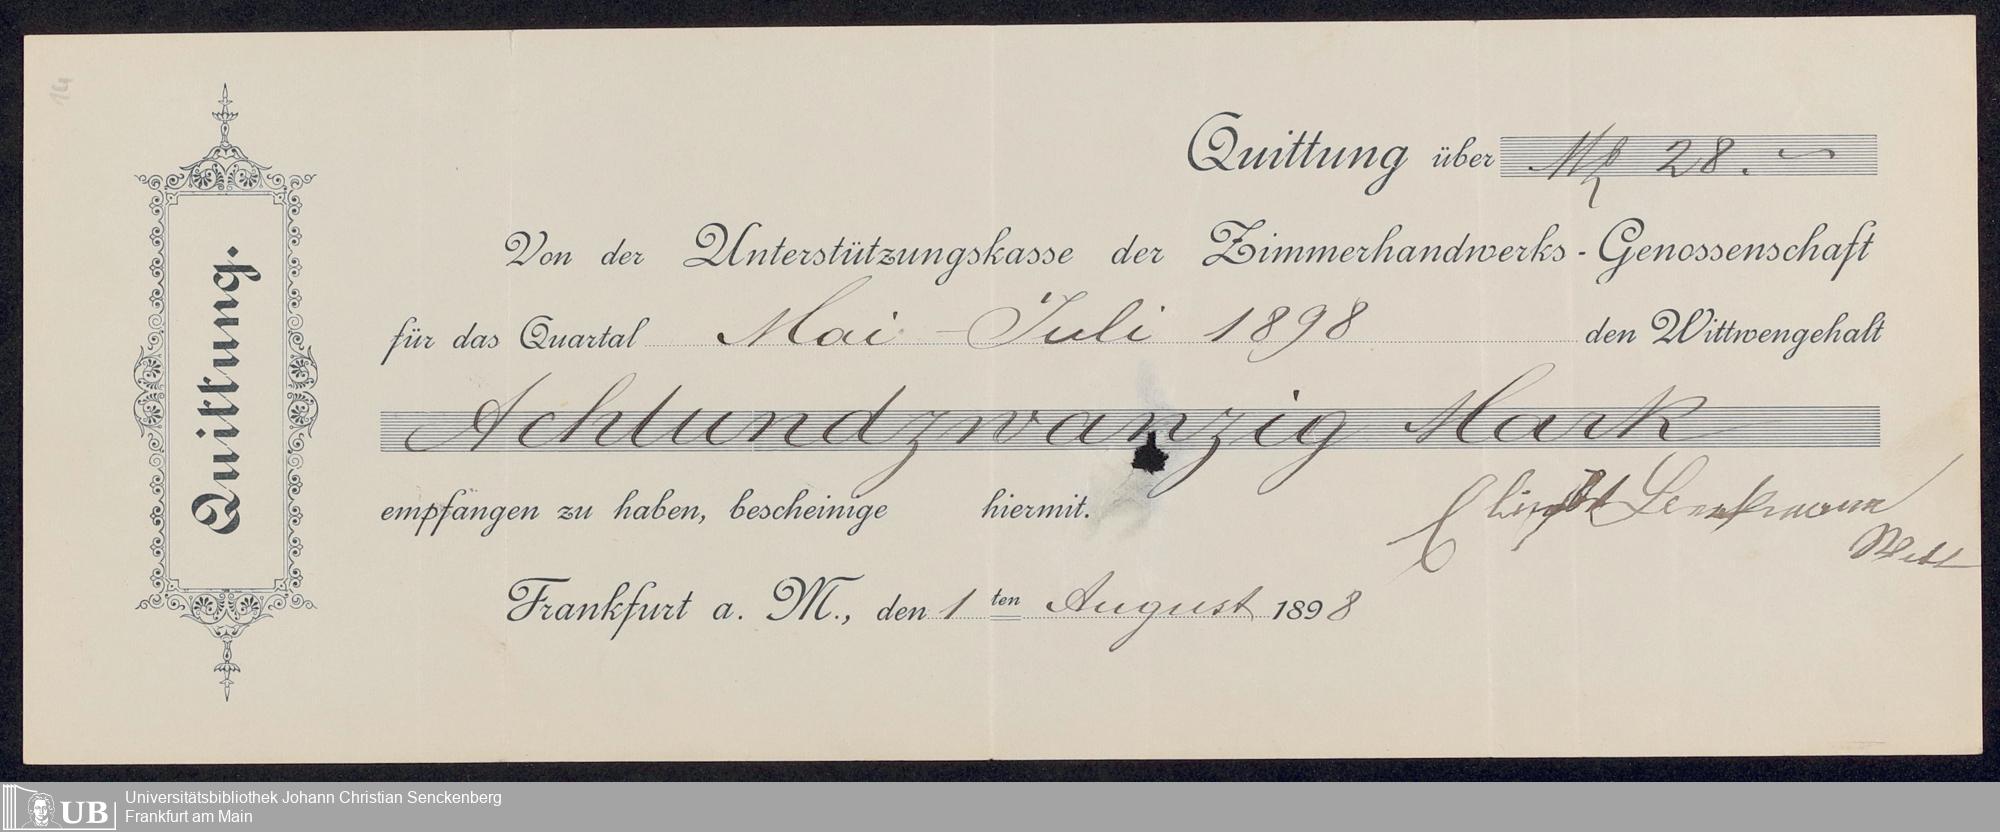 14
Quittung.
Quittung über Mk 28. —
Von der Unterstützungskasse der Zimmerhandwerks-Genossenschaft
für das Quartal Mai - Juli 1898 den Wittwengehalt
Achtundzwanzig Mark
empfangen zu haben, bescheinige hiermit.
Frankfurt a. M., den 1 ten August 1898
UB
Universitätsbibliothek Johann Christian Senckenberg
Frankfurt am Main